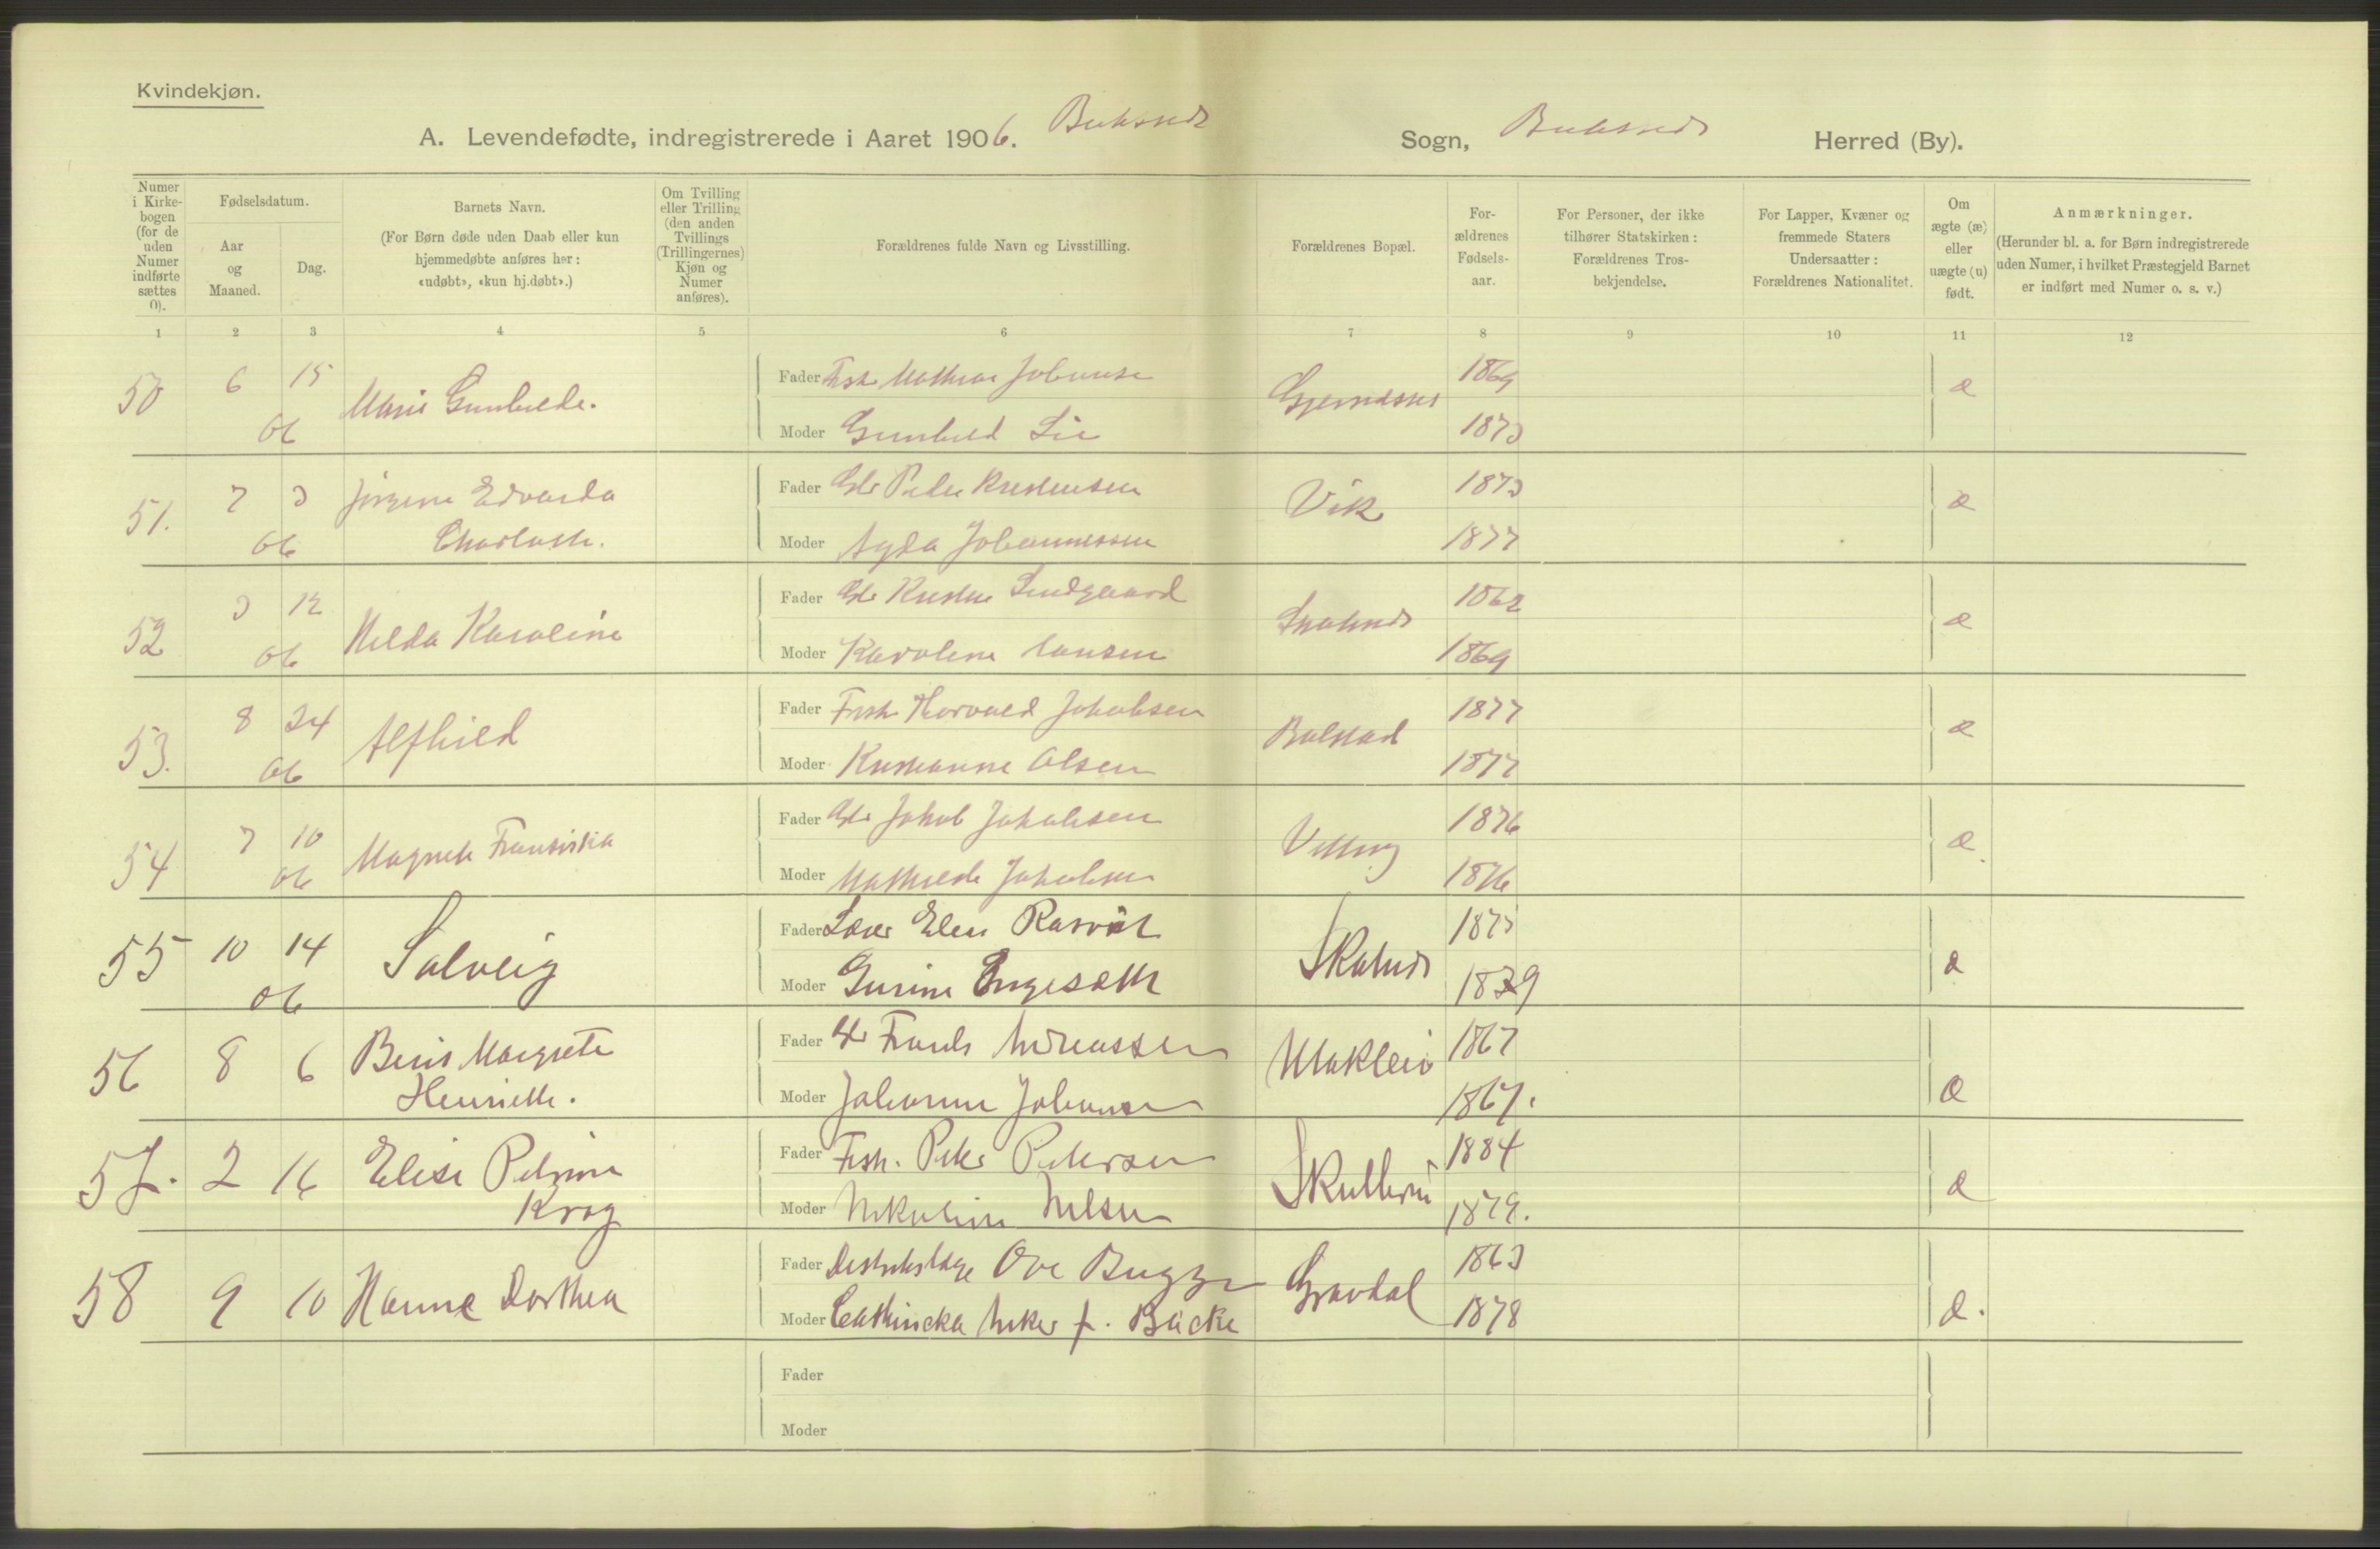 Kvindekjøn.
A. Levendefødte, indregistrerede i Aaret 1906. Buksnes Sogn, Buksnes Herred (By).
Numer i Kirke-bogen (for de uden Numer indførte sættes 0).
Fødselsdatum.
Aar og Maaned.
Dag.
Barnets Navn.
(For Børn døde uden Daab eller kun
hjemmedøbte anføres her:
«udøbt», «kun hj.døbt».)
Om Tvilling eller Trilling (den anden Tvillings (Trillingernes) Kjøn og Numer anføres).
Forældrenes fulde Navn og Livsstilling.
Forældrenes Bopæl.
For-ældrenes Fødsels-aar.
For Personer, der ikke
tilhører Statskirken:
Forældrenes Tros-
bekjendelse.
For Lapper, Kvæner og
fremmede Staters
Undersaatter:
Forældrenes Nationalitet.
Om ægte (æ) eller uægte (u) født.
Anmærkninger.
(Herunder bl. a. for Børn indregistrerede
uden Numer, i hvilket Præstegjeld Barnet
er indført med Numer o. s. v.)
1 2 3 4 5 6 7 8 9 10 11 12
50 6 15 Marie Gunhilde. Fader Fisk Mathias Johansen 1869 æ
06 Moder Gunhild Lie 1873
51. 7 3 Jørgine Edvarda Fader Gbr Peder Kristensen Vik 1873 æ
06 Charlotte. Moder Agda Johannessen 1877
52 3 12 Hilda Karoline Fader Gbr Lindgaard 1862 æ
06 Moder Karoline Hansen 1869
53. 8 24 Alfhild Fader Fisk Thorvald Jakobsen Balstad 1877 æ
06 Moder Kristianne Olsen 1877
54 7 10 Magnele Fransiska Fader Gbr Jakob Jakobsen 1876 æ
06 Moder Mathilde Jakobsen 1876
55 10 14 Solveig Fader Lærer Elias Rasvik Skotnes æ
06 Moder Gurine Engeseth 1879
56 8 6 Beris Margrete Fader Gbr Frants Andreassen Ulaklei 1867
Henriette. Moder Johanne Johansen 1867. æ
57. 2 16 Elise Petrine Fader Fisk. Peter Petersen 1884 æ
Krog Moder Nikoline Nilsen 1879.
58 9 10 Hanne Dorthea Fader Distriktslæge Ove Bugge Gravdal 1863
Moder Cathincka Anker f. Bäcke 1878 æ.
Fader
Moder